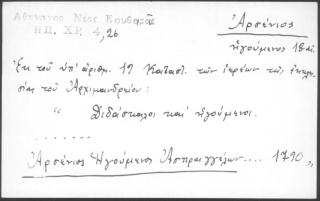 Αθανάσιος Νέος Κουβαρᾶς
ΗΠ. ΧΡ. 4, 26
Ἀρσένιος
ἡγούμενος 18 αἰ.
Ἐκ τοῦ ὑπ' ἀριθμ. 19 Καταστ. τῶν ἱερέων τῆς ἐκκλη-
σίας τοῦ Ἀρχιμανδρείου:
" Διδάσκαλοι καὶ ἡγούμενοι.
. . . . . .
Ἀρσένιος Ἡγούμενος Ἀσπραγγέλων.... 1790 "